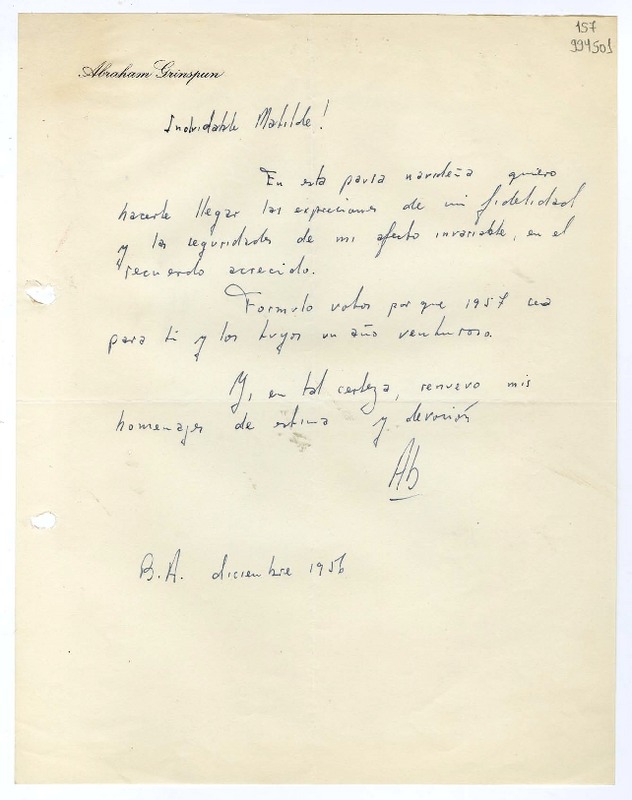 157
994501
Abraham Grinspun
Inolvidable Matilde!
En esta pausa navideña quiero
hacerte llegar las expresiones de mi fidelidad
y las seguridades de mi afecto invariable, en el
recuerdo acrecido.
Formulo votos por que 1957 sea
para ti y los tuyos un año venturoso.
Y, en tal certeza, renuevo mis
homenajes de estima y devoción
Ab
B.A. diciembre 1956